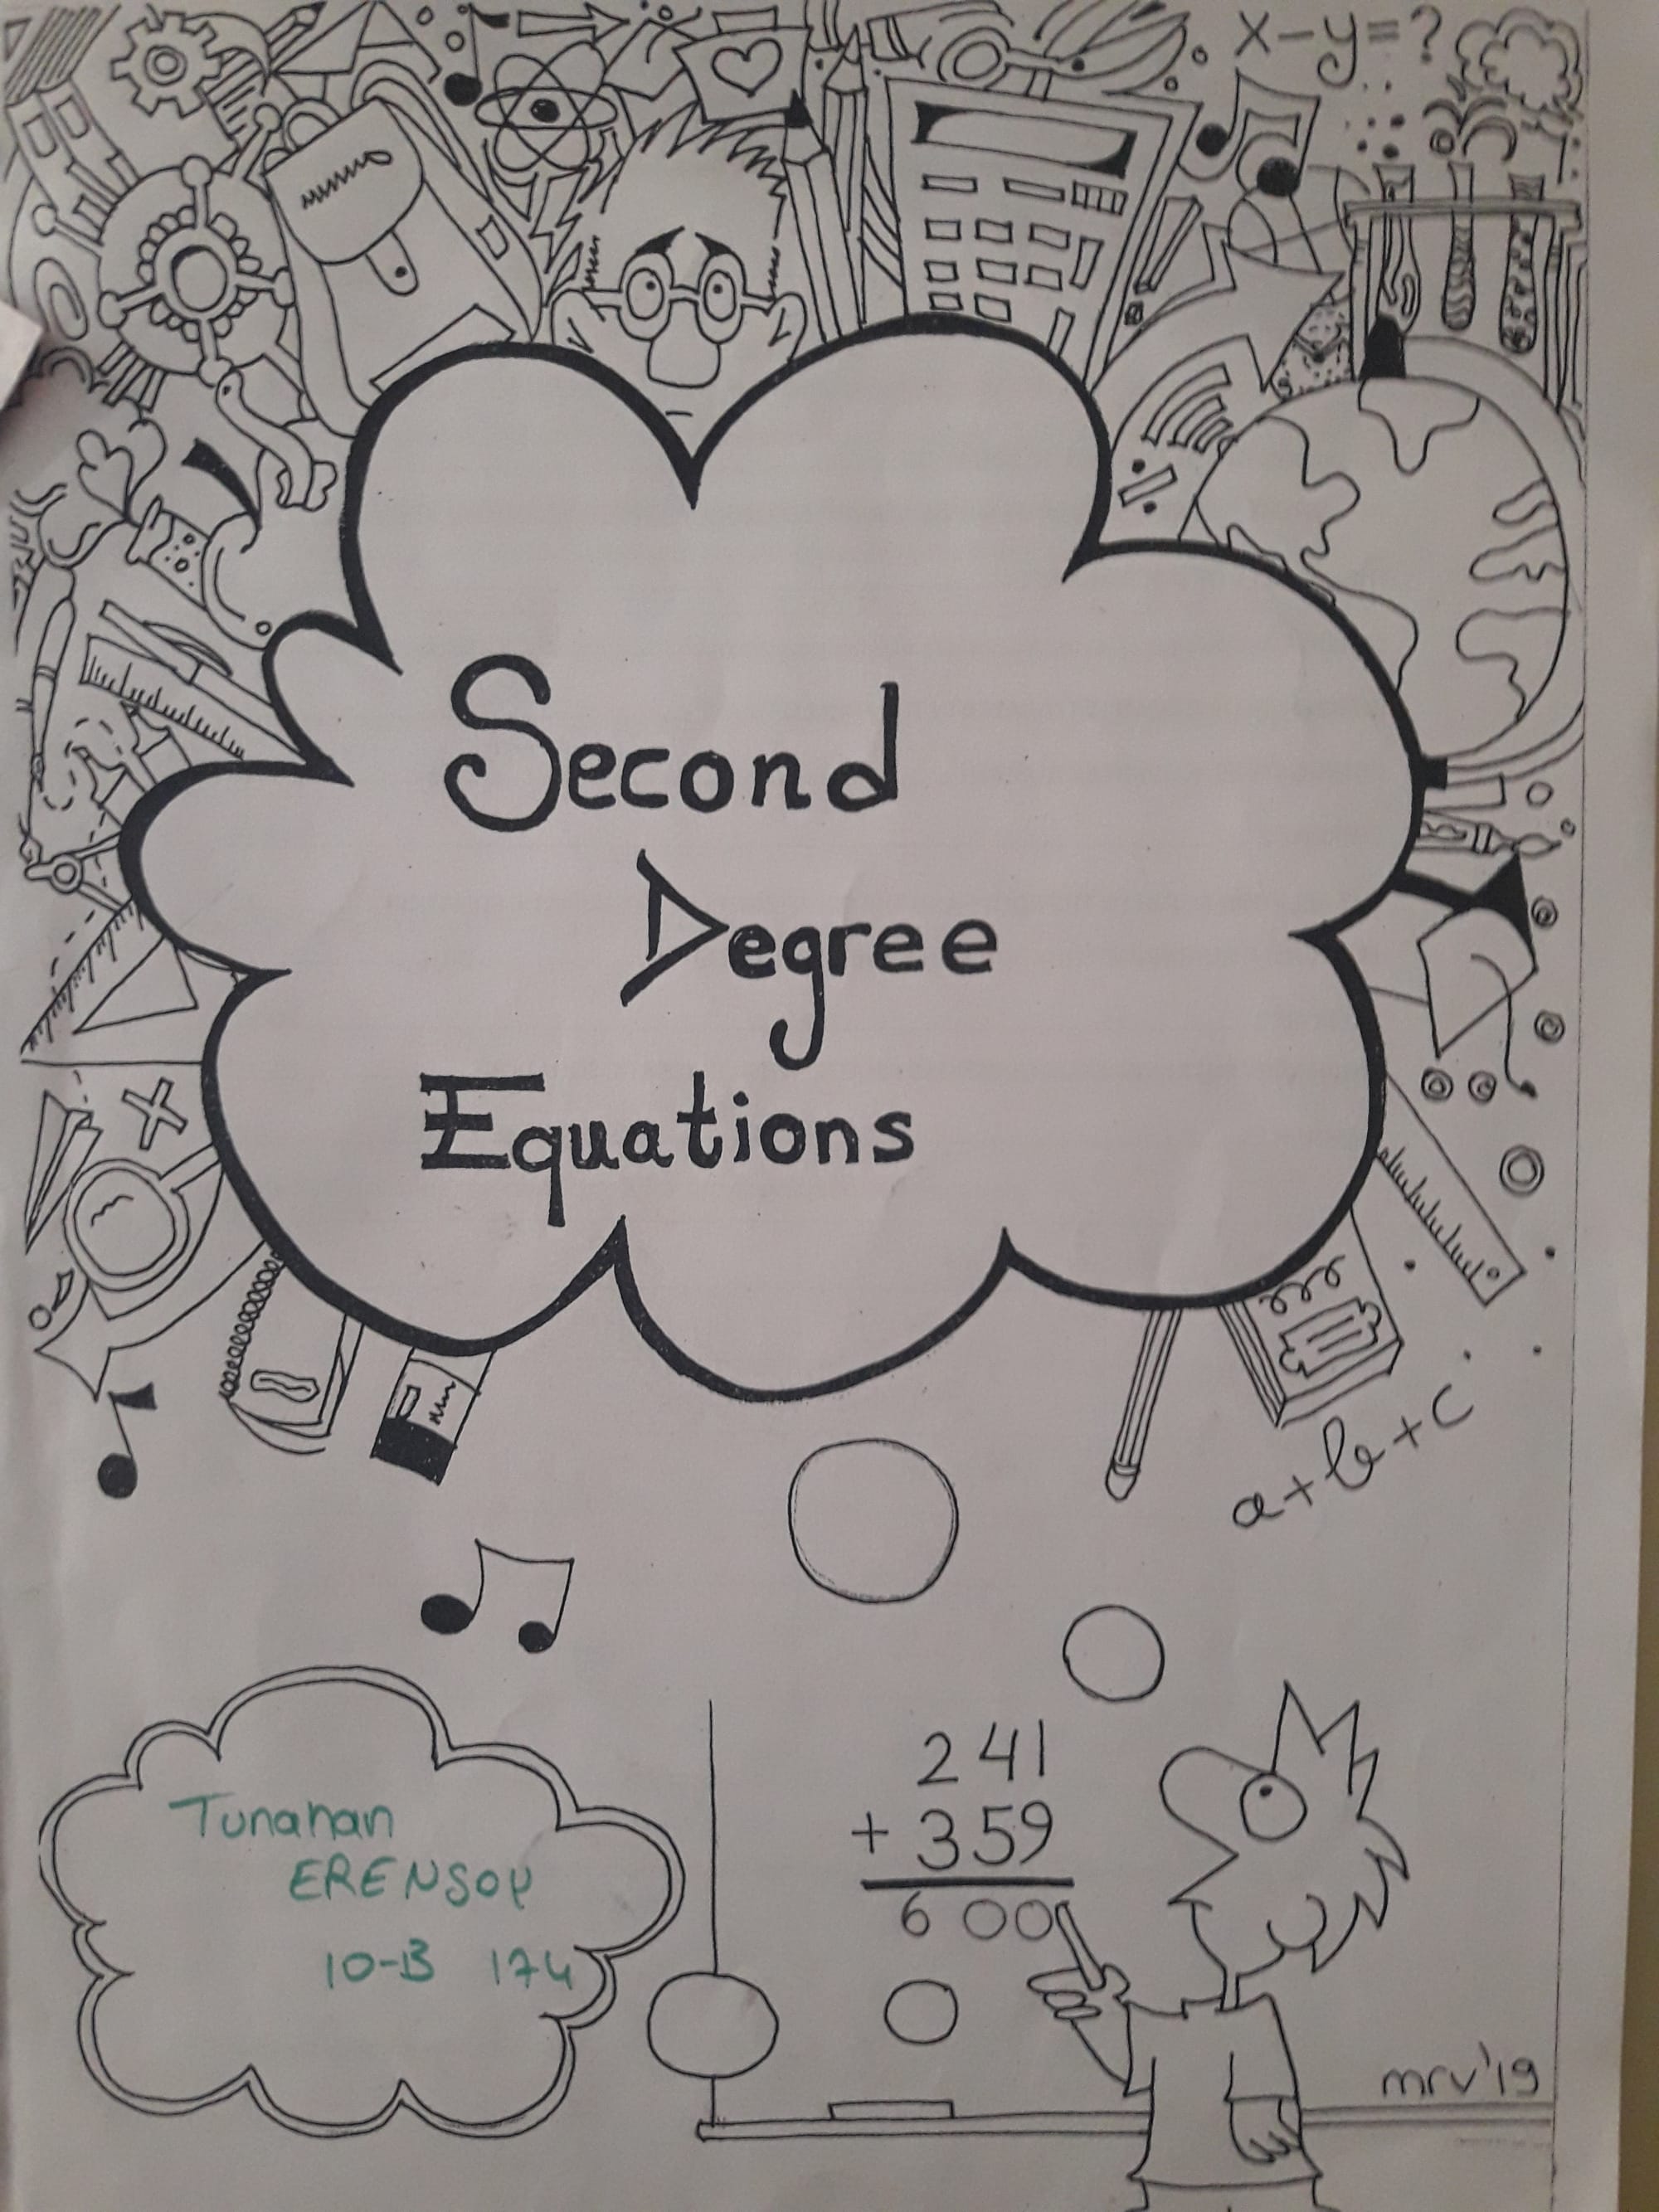 x-y=?
Second
Degree
Equations
a+b+c
Tunahan
ERENSOY
10-B 174
241
+359
600
mrv'19